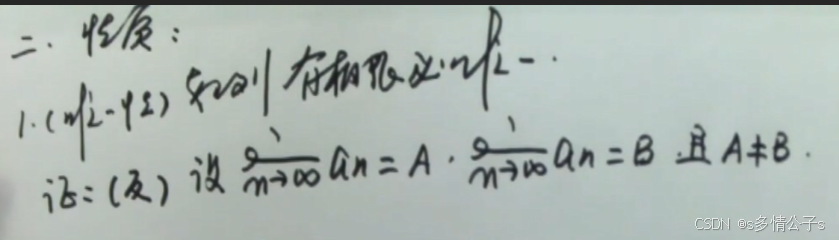 二. 性质:
1. (唯一性) 数列有极限必唯一.
证:(反) 设 lim n→∞ an = A. lim n→∞ an = B 且 A≠B.
CSDN @s多情公子s